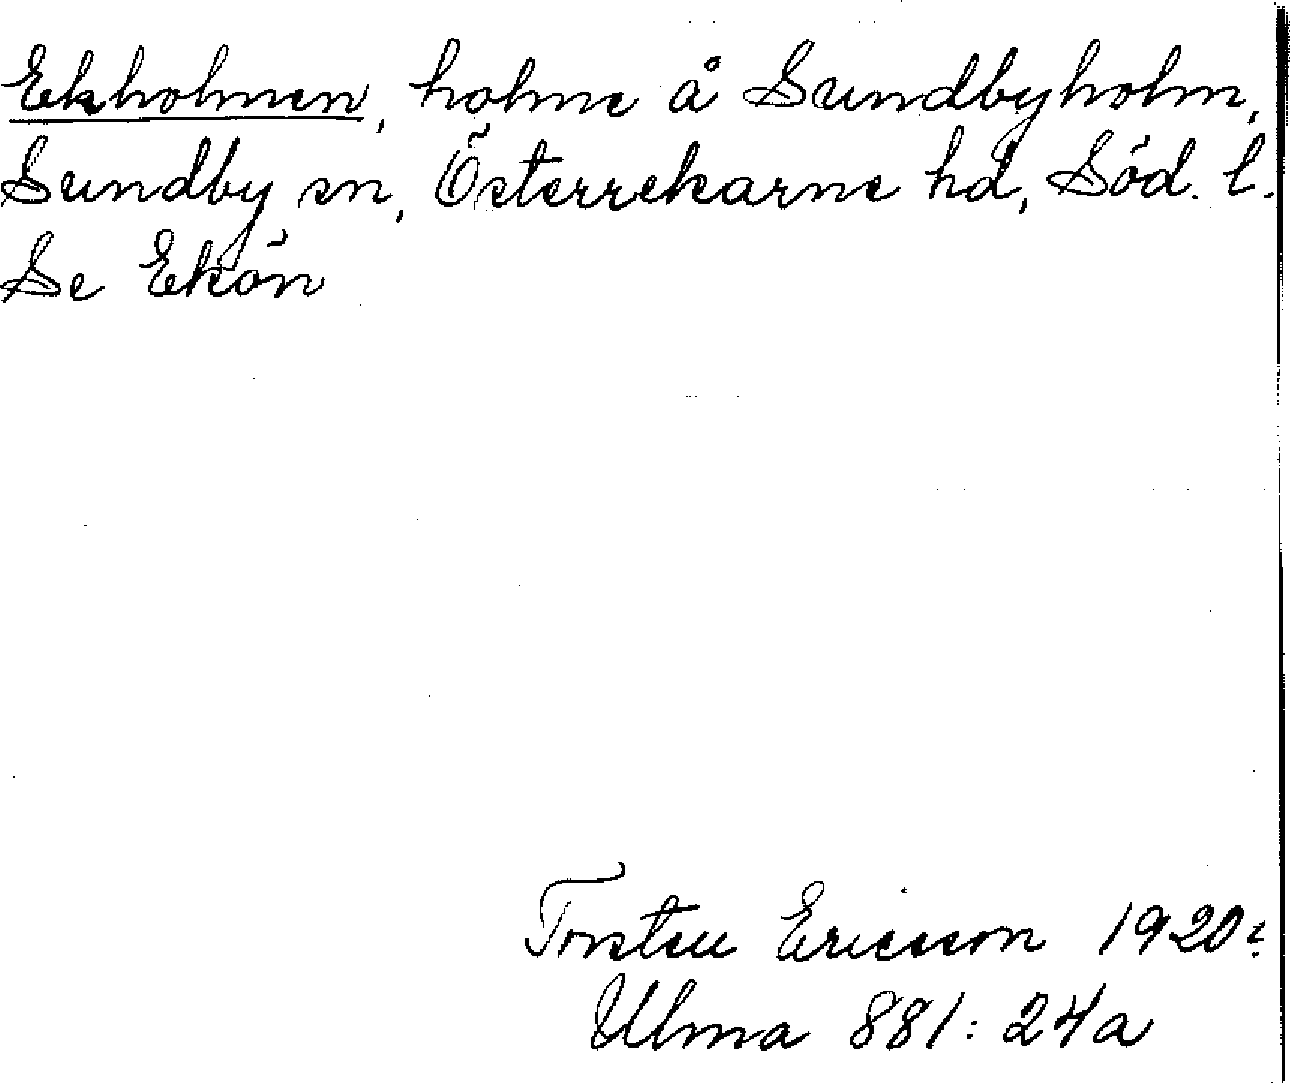 Ekholmen, holme å Sundbyholm,
Sundby sn, Österrekarne hd, Söd. l.
Se Ekön
Torsten Ericsson 1920?
Ulma 881:24a